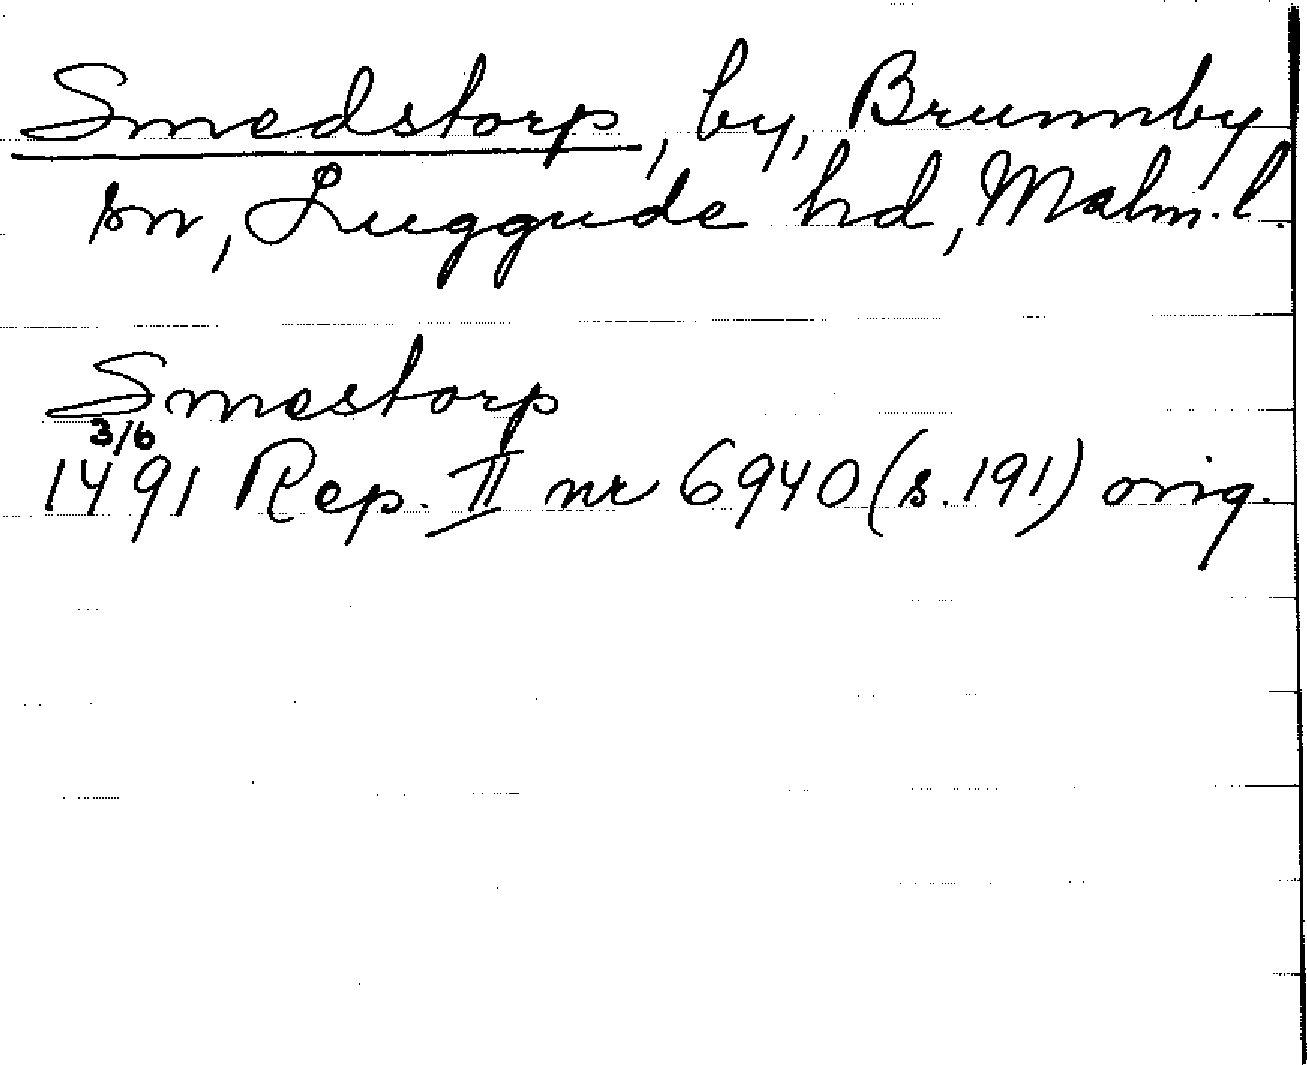 Smedstorp, by, Brunnby
sn, Luggude hd, Malm. l.
Smestorp
3/6
1491 Rep. II nr 6940 (s. 191) orig.